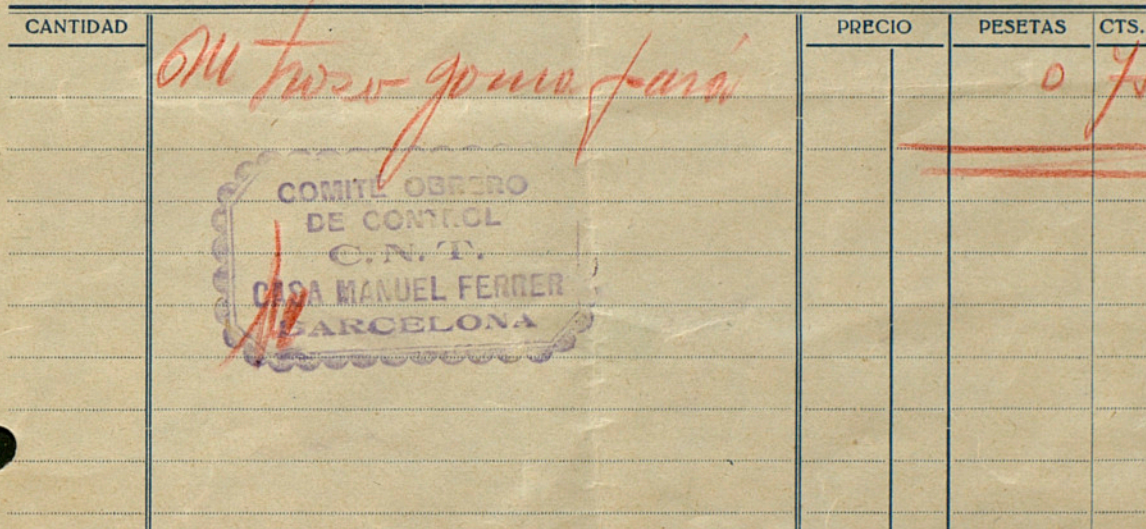 CANTIDAD PRECIO PESETAS CTS.
Un trozo goma pará 0
COMITÉ OBRERO
DE CONTROL
C. N. T.
CASA MANUEL FERRER
BARCELONA